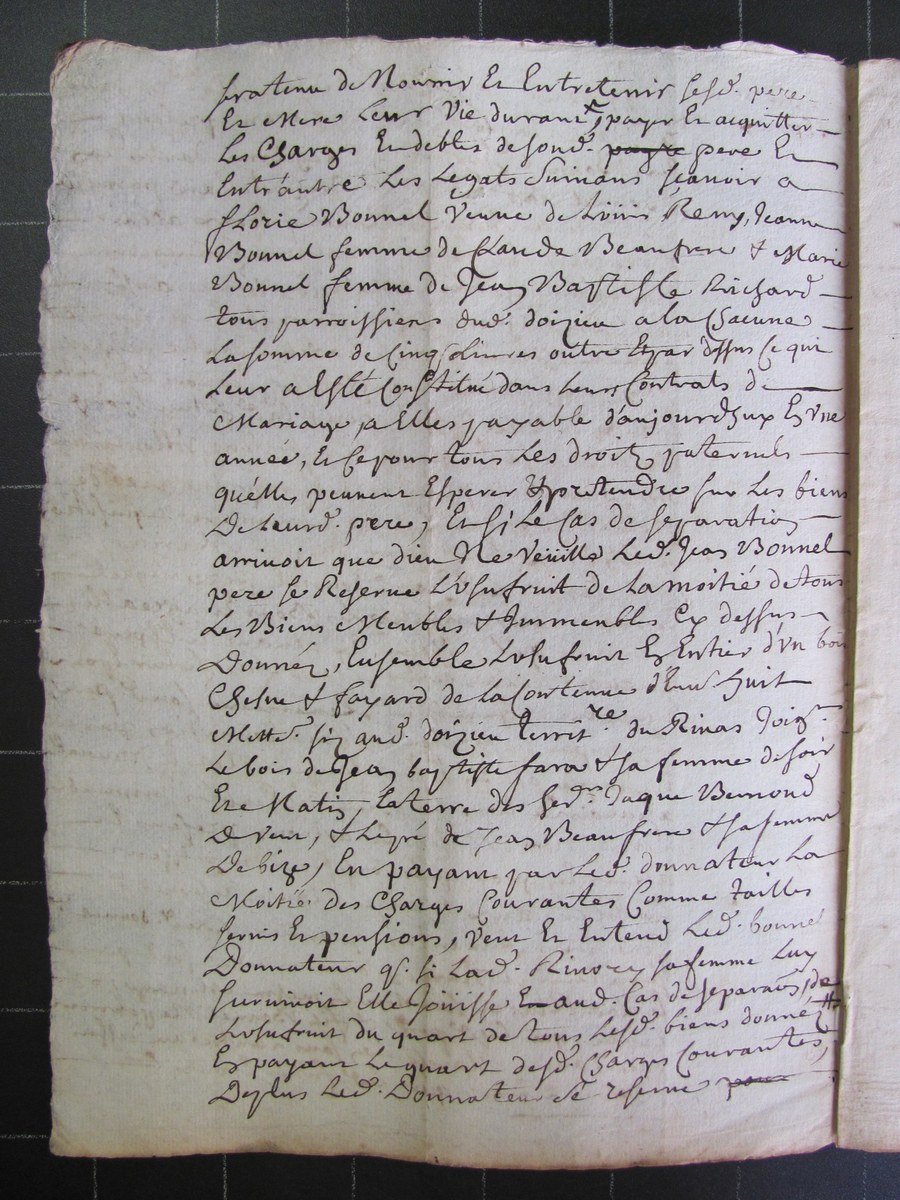 sera tenu de Nourrir Et Entretenir sesd. pere
Et Mere leur Vie durant, payer Et acquitter
Les Charges Et debtes de sond. payre pere Et
Entráutre Les Legats Suivans sçavoir a
fLorie Bonnel Veuve de Loüis Remy, Jeanne
Bonnel femme de Claude Beaufrere & Marie
Bonnel femme de Jean Baptiste Richard
tous parroissiens dud. doizieu a la Chacune
La somme de Cinq Livres outre Et par dessus Ce qui
Leur a Esté Constitué dans Leurs Contrats de
Mariage, a Elles payable d'aujourd'huy En Une
année, Et Ce pour tous Les droits paternels
quélles peuvent Esperer & pretendre sur Les biens
de Leurd. pere, Et si Le Cas de separation
arrivoit que dieu Ne Veuille Led. Jean Bonnel
pere se Reserve L'Usufruit de La moitié de tous
Les Biens Meubles & Immeubles Cy dessus
Donnéz, Ensemble Lusufruit En Entier d'Un bois
Chesne & fayard de La Contenue d'Env. huit
Mett. siz aud. doizieu territre du Rinas Joig.
Le bois de Jean baptiste fara & sa femme de soir
Et Matin, La terre des Jaque Bernond
De Vent, & Le pré de Jean Beaufrere & sa femme
De bize, En payant par Led. donnateur La
Moitié des Charges Courantes Comme tailles
servis Et pensions, Veut Et Entend Led. bonnel
Donnateur q. si Lad. sa femme Luy
survivoit Elle Joüisse Aud. Cas de separaon, de
Lusufruit du quart de tous Lesd. biens donnéz #
En payant Le quart desd. Charges Courantes,
Deplus Led. Donnateur se reserve pour